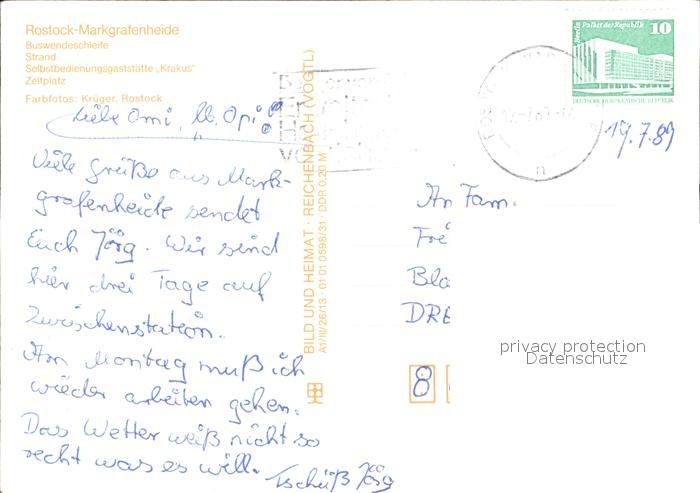 Rostock-Markgrafenheide
Buswendeschleife
Strand
Selbstbedienungsgaststätte „Krakus“
Zeltplatz
Farbfotos: Krüger, Rostock
Liebe Omi, lb. Opi!
Viele Grüße aus Mark-
grafenheide sendet
Euch Jörg. Wir sind
hier drei Tage auf
Zwischenstation.
Am Montag muß ich
wieder arbeiten gehen.
Das Wetter weiß nicht so
recht was es will.
Tschüß Jörg
BILD UND HEIMAT · REICHENBACH (VOGTL)
A1/III/26/13 · 01 01 0598/31 · DDR 0,20 M
Berlin Palast der Republik
10
DEUTSCHE DEMOKRATISCHE REPUBLIK
n
19.7.89
An Fam.
Fré
Bla
DRE
8
privacy protection
Datenschutz